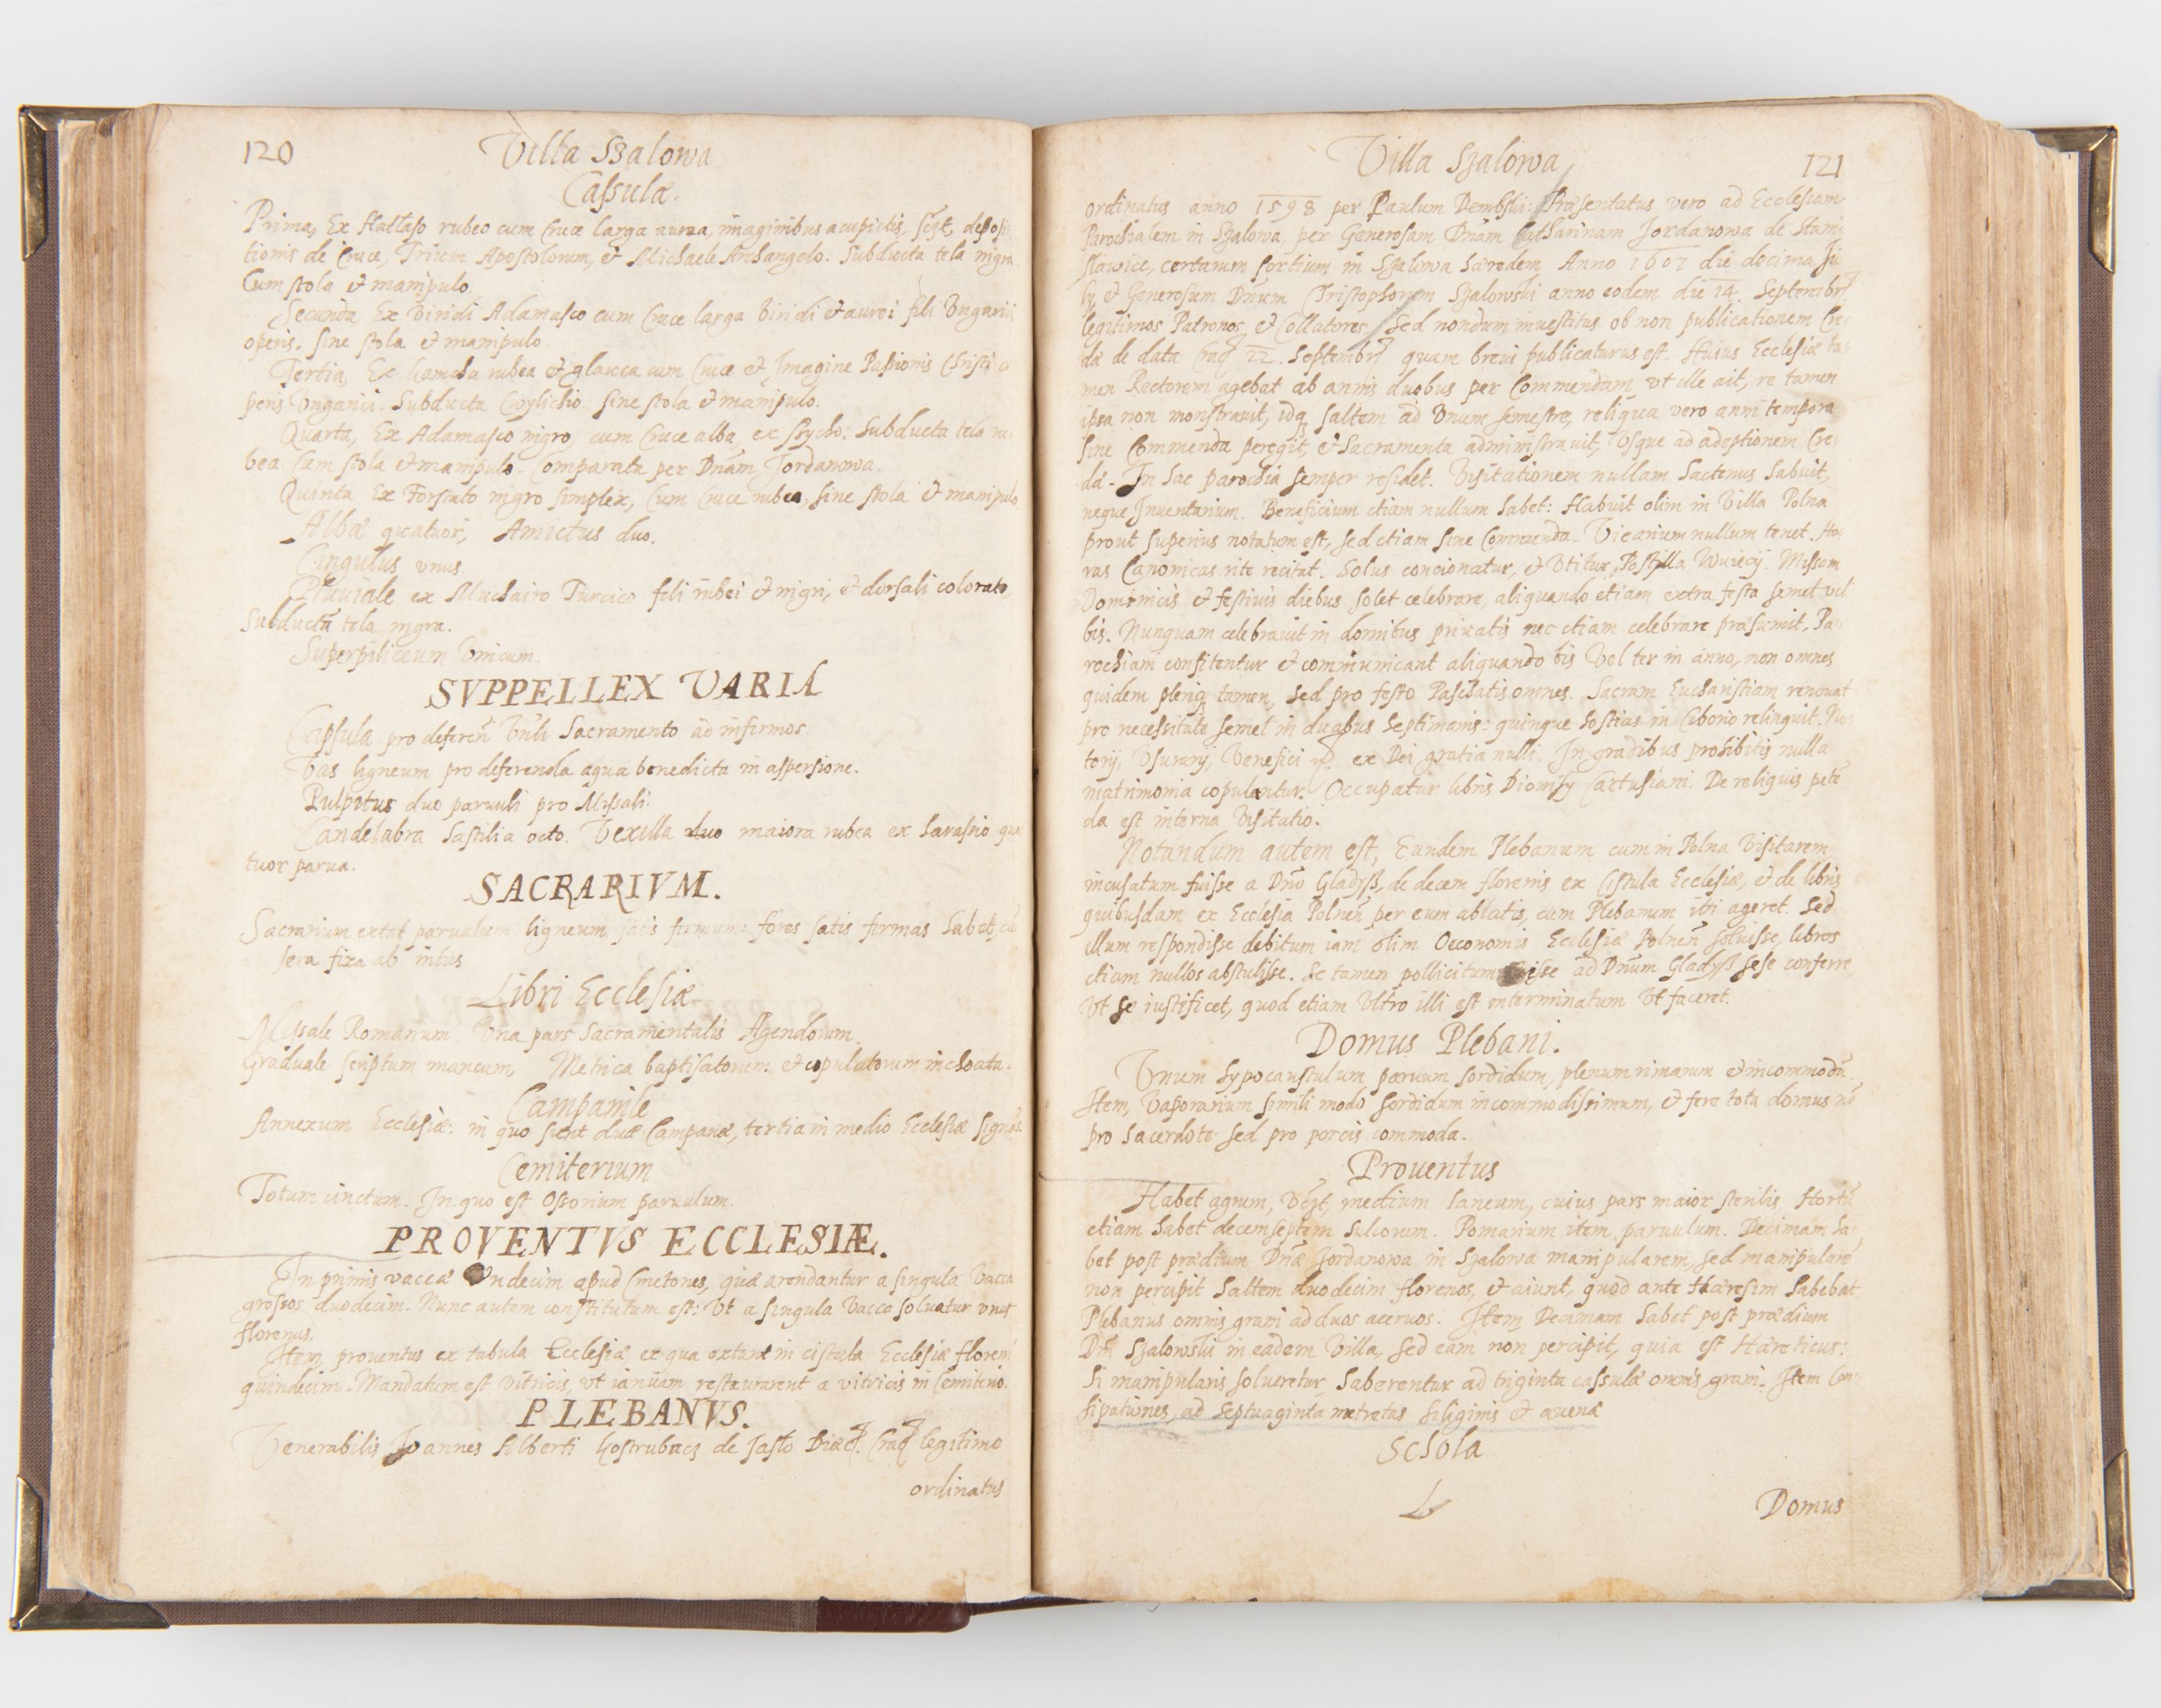 120
Villa Szalowa
Cassulæ.
Prima, Ex Hattaso rubeo cum Cruce larga aurea, imaginibus acupictis, scẑt, deposi
tionis de Cruce, Trium Apostolorum, et Michaele Archangelo. Subducta tela nigra
Cum stola et manipulo.
Secunda Ex Viridi Adamasco cum Cruce larga Viridi et aurei fili Vngarici
operis. sine stola et manipulo.
Tertia, Ex hamcha rubea et glauca cum Cruce et Imagine Passionis Christi o
peris Vngarici. Subducta Cwylichio sine stola et manipulo.
Quarta, Ex Adamasco nigro, cum Cruce alba, ex Stycho: Subducta tela ru
bea cum stola et manipulo. Comparata per Dnam Jordanowa.
Quinta Ex Forstato nigro simplex, cum Cruce rubea, sine stola et manipulo
Albæ quatuor, Amictus duo.
Cingulus vnus.
Pluuiale ex Muchairo Turcico fili rubei et nigri, et dorsali colorato,
Subductū tela nigra.
Superpiliceum Vnicum.
SVPPELLEX VARIA
Capsula pro deferen̄ Vnli Sacramento ad infirmos.
Vas ligneum pro deferenda aqua benedicta in aspersione.
Pulpitus duo paruuli pro Missali.
Candelabra hastilia octo. Vexilla duo maiora rubea ex harassio qua
tuor parua.
SACRARIVM.
Sacrarium extat paruulum ligneum satis firmum: fores satis firmas habet, cū
sera fixa ab intus
Libri Ecclesiæ
Missale Romanum. Vna pars Sacramentalis Agendorum.
Graduale scriptum mancum, Metrica baptisatorum et copulatorum inchoata.
Campanile
Annexum Ecclesiæ: in quo sunt duæ Campanæ, tertia in medio Ecclesiæ
Cemiterium
Totum cinctum. In quo est Ossorium paruulum.
PROVENTVS ECCLESIÆ.
In primis vaccæ Vndecim apud Cmetones, quæ arendantur a singula Vacca
grossos duodecim. Nunc autem constitutum est: Vt a singula Vacca soluatur vnus
florenus.
Item, prouentus ex tabula Ecclesiæ, ex qua extant in cistula Ecclesiæ floreni
quindecim. Mandatum est Vitricis, vt ianuam restaurarent a vitricis in Cemiterio.
PLEBANVS.
Venerabilis Joannes Alberti Kostrubacz de Jaslo Diæc. Crac legitime
ordinatus
Villa Szalowa
121
ordinatus anno 1598 per Paulum Dembski: Præsentatus vero ad Ecclesiam
Parochialem in Szalowa per Generosam Dnam Catharinam Jordanowa de Stani
slawice, certarum sortium in Szalowa hæredem Anno 1607 die decima Ju
ly, et Generosum Dnum Christophorum Szalowski anno eodem die 14. Septembr
legitimos Patronos, et Collatores. Sed nondum inuestitus ob non publicationem Cre
dæ de data Crac 22. Septembr quam breui publicaturus est. Huius Ecclesiæ ta
men Rectorem agebat ab annis duobus per Commendam, vt ille ait, re tamen
ipsa non monstrauit, idq saltem ad Vnum semestre, reliqua vero anni tempora
sine Commenda peregit, et Sacramenta administrauit, Vsque ad adeptionem Cre
dæ. In hac parochia semper residet. Visitationem nullam hactenus habuit,
neque Inuentarium. Beneficium etiam nullum habet: Habuit olim in Villa Polna
prout superius notatum est, sed etiam sine Commenda. Vicarium nullum tenet. Ho
ras Canonicas rite recitat. Solus concionatur, et Vtitur Postylla Wuiecÿ. Missam
Dominicis et festiuis diebus solet celebrare, aliquando etiam extra festa semel vel
bis. Nunquam celebrauit in domibus priuatis nec etiam celebrare præsumit. Pa
rochiani confitentur et communicant aliquando bis Vel ter in anno, non omnes
quidem pleriq tamen, sed pro festo Paschatis omnes. Sacram Eucharistiam renouat
pro necessitate semel in duabus Septimanis: quinque hostias in Ciborio relinquit. No
torÿ, Vsurarÿ, Venefici ex Dei gratia nulli. In gradibus prohibitis nulla
matrimonia copulantur. Occupatur libris Dionisÿ Cartusiani. De reliquis petē
da est interna Visitatio.
Notandum autem est, Eundem Plebanum cum in Polna Visitarem
incusatum fuisse a Dno Gladyß, de decem florenis ex Cistula Ecclesiæ, et de libris
quibusdam ex Ecclesia Polnen̄ per eum ablatis, cum Plebanum ibi ageret. Sed
illum respondisse debitum iam olim Oeconomis Ecclesiæ Polnen̄ soluisse, libros
etiam nullos abstulisse. Se tamen pollicitum fuisse ad Dnum Gladyß sese conferre,
Vt se iustificet, quod etiam Vltro illi est interminatum Vt faceret.
Domus Plebani.
Vnum hypocaustulum paruum sordidum, plenum rimarum et incommodū.
Item, Vaporarium simili modo sordidum incommodissimum, et fere tota domus nō
pro Sacerdote sed pro porcis commoda.
Prouentus
Habet agrum, Vẑt, medium laneum, cuius pars maior sterilis Hortū
etiam habet decem septem sulcorum. Pomarium item paruulum. Decimam ha
bet post prædium Dnæ Jordanowa in Szalowa manipularem, sed manipulare
non percipit saltem duodecim florenos, et aiunt, quod ante Hæresim habebat
Plebanus omnis grani ad duos aceruos. Item Decimam habet post prædium
Dni Szalowski in eadem Villa, sed eam non percipit, quia est Hæreticus:
Si manipularis solueretur, haberentur ad triginta cassulæ omnis grani. Item Con
sipationes, ad Septuaginta metretas siliginis et auenæ
Schola
Domus